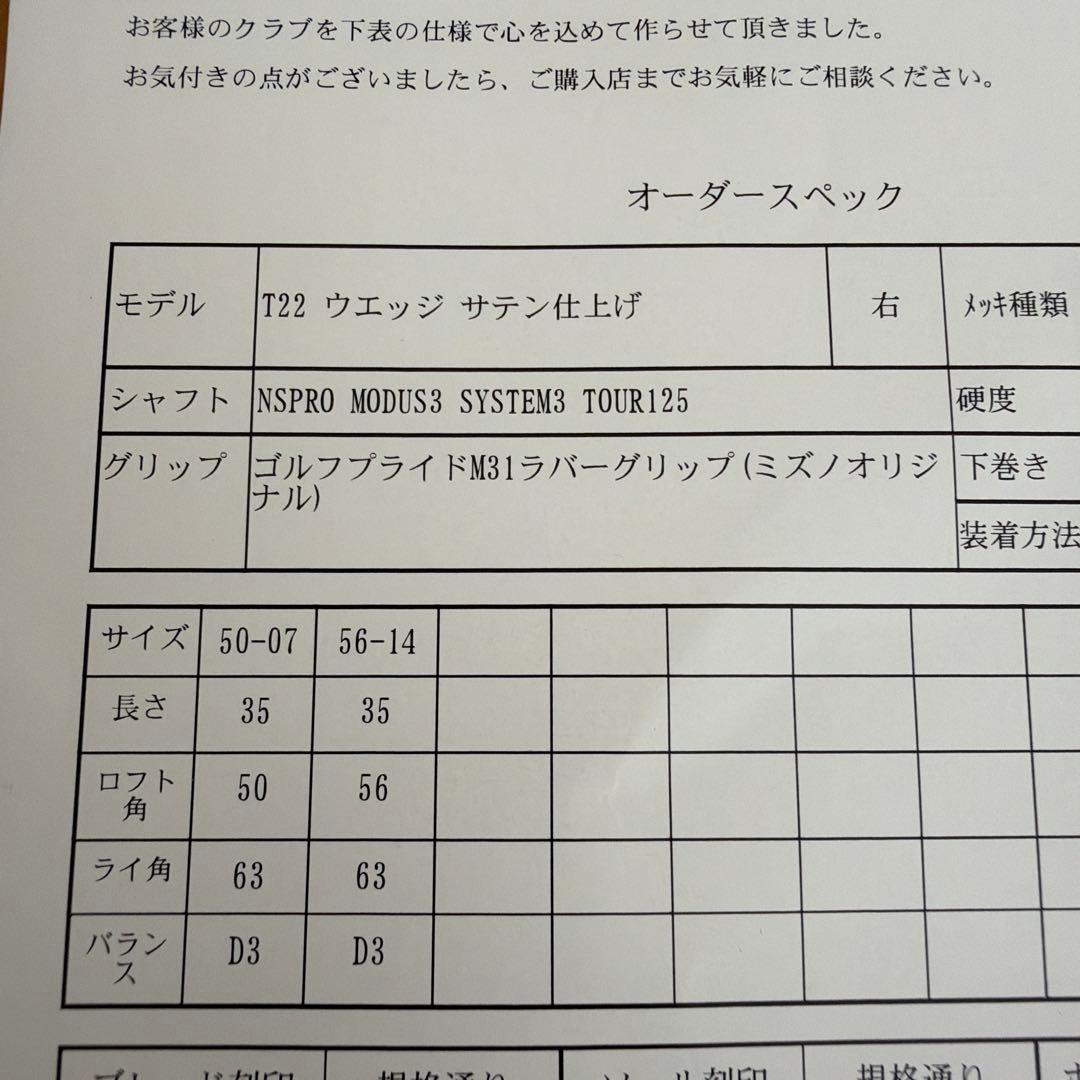 お客様のクラブを下表の仕様で心を込めて作らせて頂きました。
お気付きの点がございましたら、ご購入店までお気軽にご相談ください。
オーダースペック
モデル T22 ウエッジ サテン仕上げ 右 ﾒｯｷ種類
シャフト NSPRO MODUS3 SYSTEM3 TOUR125 硬度
グリップ ゴルフプライドM31ラバーグリップ(ミズノオリジ 下巻き
ナル)
装着方法
サイズ 50-07 56-14
長さ 35 35
ロフト 50 56
角
ライ角 63 63
バラン D3 D3
ス
規格通り 規格通り